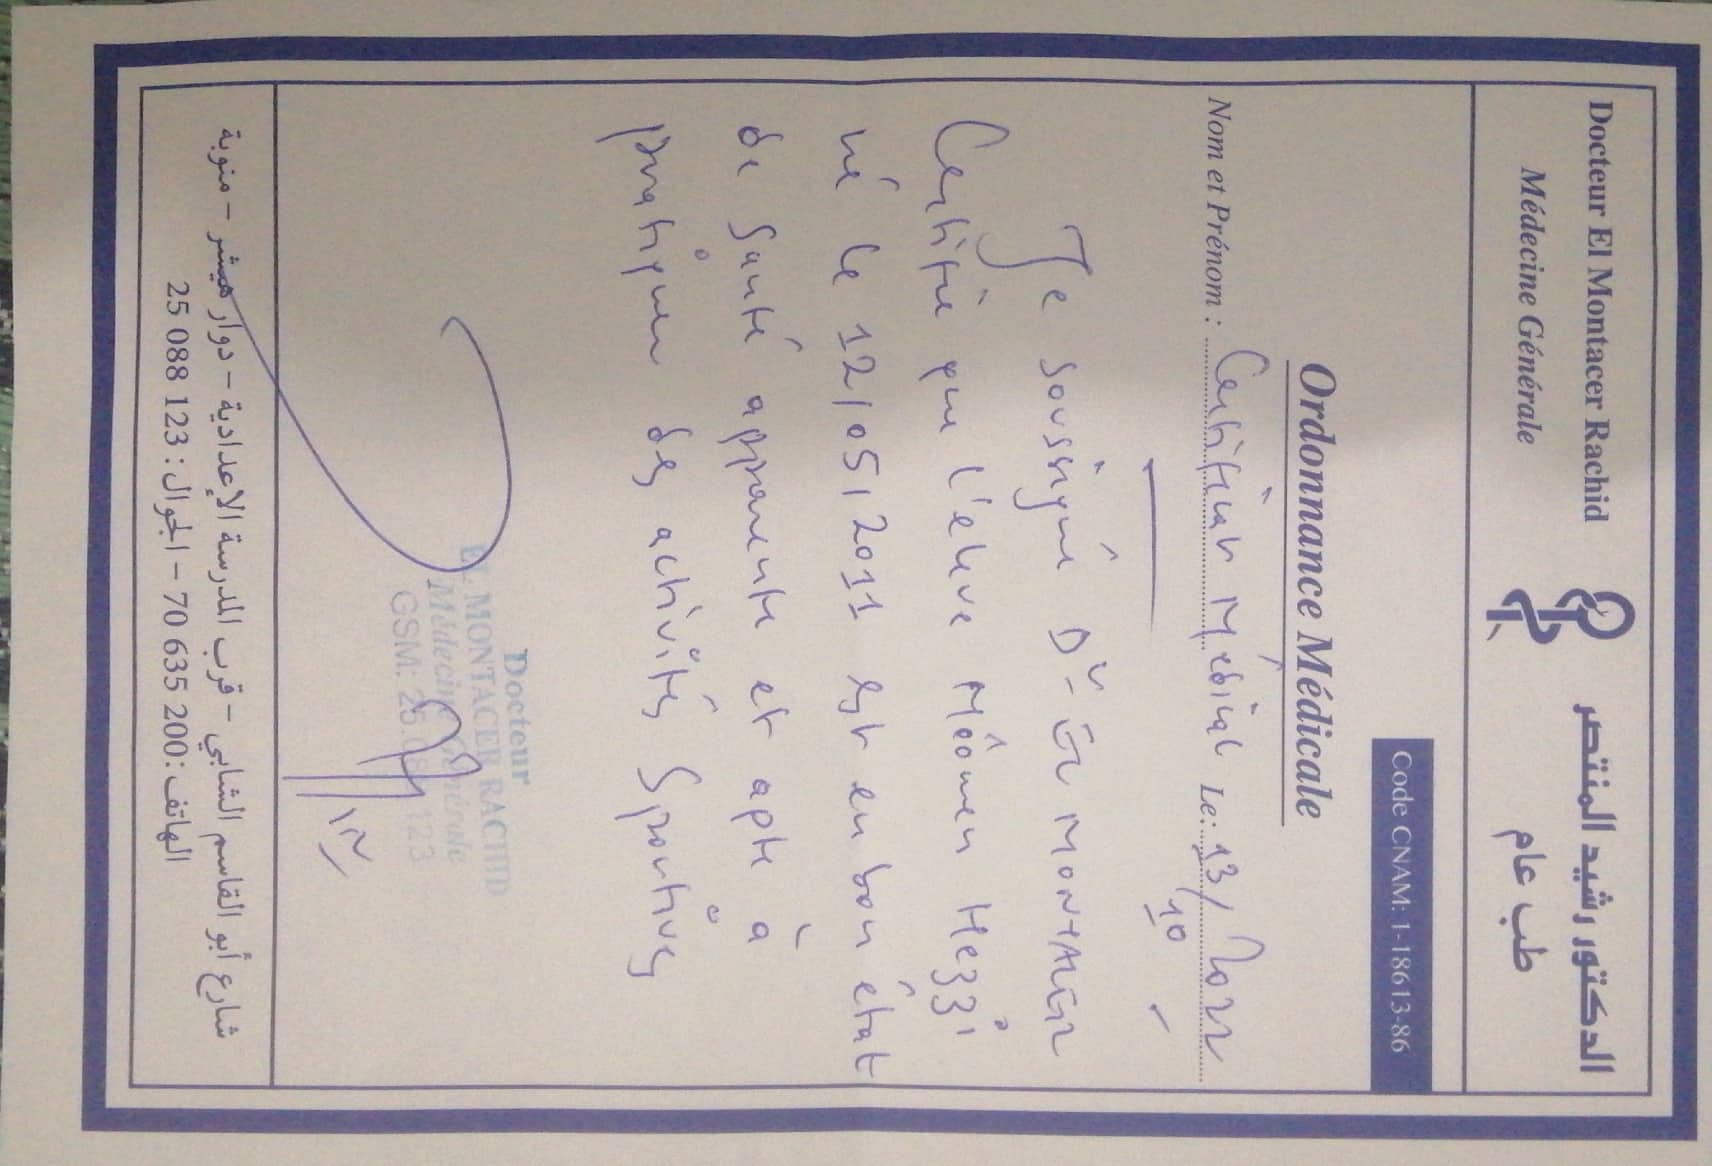 Docteur El Montacer Rachid
Médecine Générale
الدكتور رشيد المنتصر
طب عام
Code CNAM: 1-18613-86
Ordonnance Médicale
Nom et Prénom : Certificat Médical Le: 13/10/2022
Je soussigné Dr El MONTACER
Certifie que l'élève Méômen Hezzi
né le 12/05/2011 est en bon état
de santé apparente et apte à
pratiquer des activités sportives
Docteur
EL MONTACER RACHID
Médecine Générale
GSM: 25.088.123
شارع أبو القاسم الشابي - قرب المدرسة الإعدادية - دوار هيشر - منوبة
الهاتف: 70 635 200 - الجوال: 25 088 123